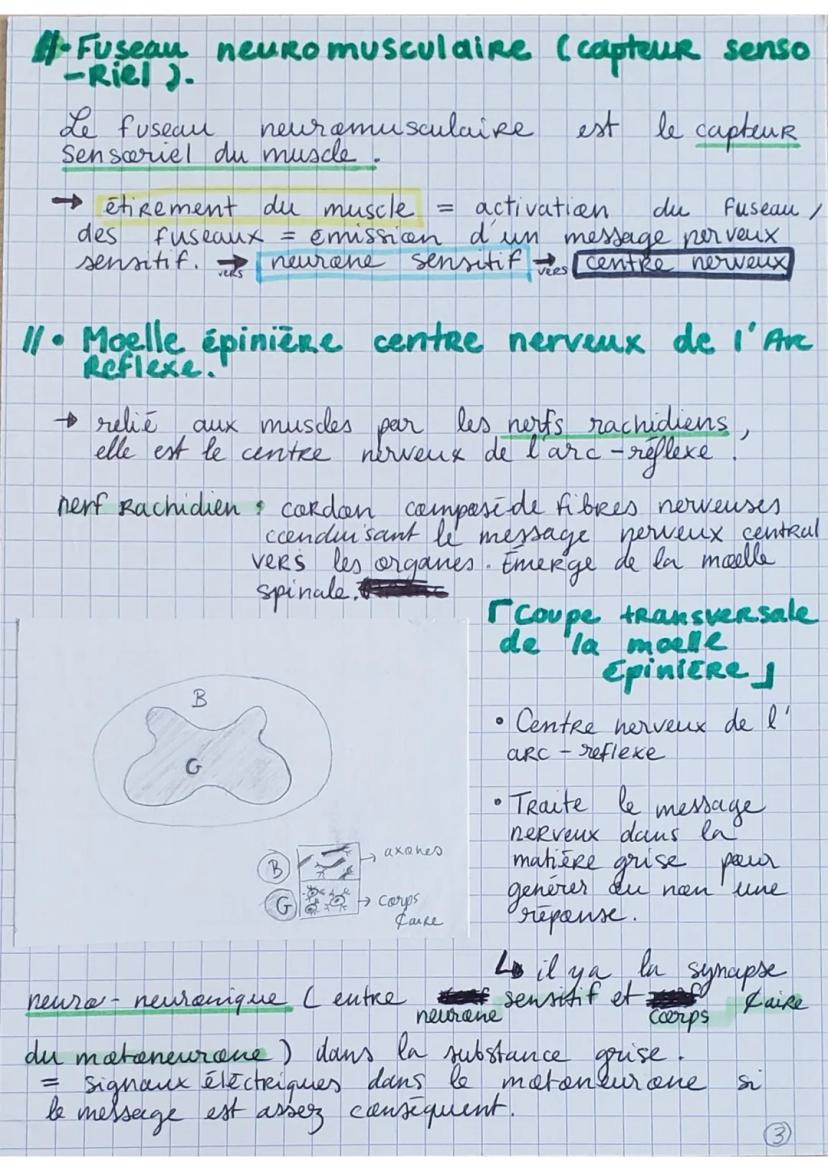 II • Fuseau neuromusculaire (capteur senso
-Riel).
Le fuseau neuromusculaire est le capteur
sensoriel du muscle.
→ étirement du muscle = activation du fuseau /
des fuseaux = émission d'un message nerveux
sensitif. → vers neurone sensitif → vers centre nerveux
II • Moelle épinière centre nerveux de l'Arc
Reflexe.
→ relié aux muscles par les nerfs rachidiens,
elle est le centre nerveux de l'arc-réflexe.
nerf Rachidien : cordon composé de fibres nerveuses
conduisant le message nerveux central
vers les organes. Émerge de la moelle
spinale.
「Coupe transversale
de la moelle
Épinière」
B
G
B → axones
G → corps
¢aire
• Centre nerveux de l'
arc-reflexe
• Traite le message
nerveux dans la
matière grise pour
génerer ou non une
réponse.
↳ il ya la synapse
neuro-neuronique (entre neurone sensitif et corps ¢aire
du motoneurone) dans la substance grise.
= signaux éléctriques dans le motoneurone si
le message est assez conséquent.
3